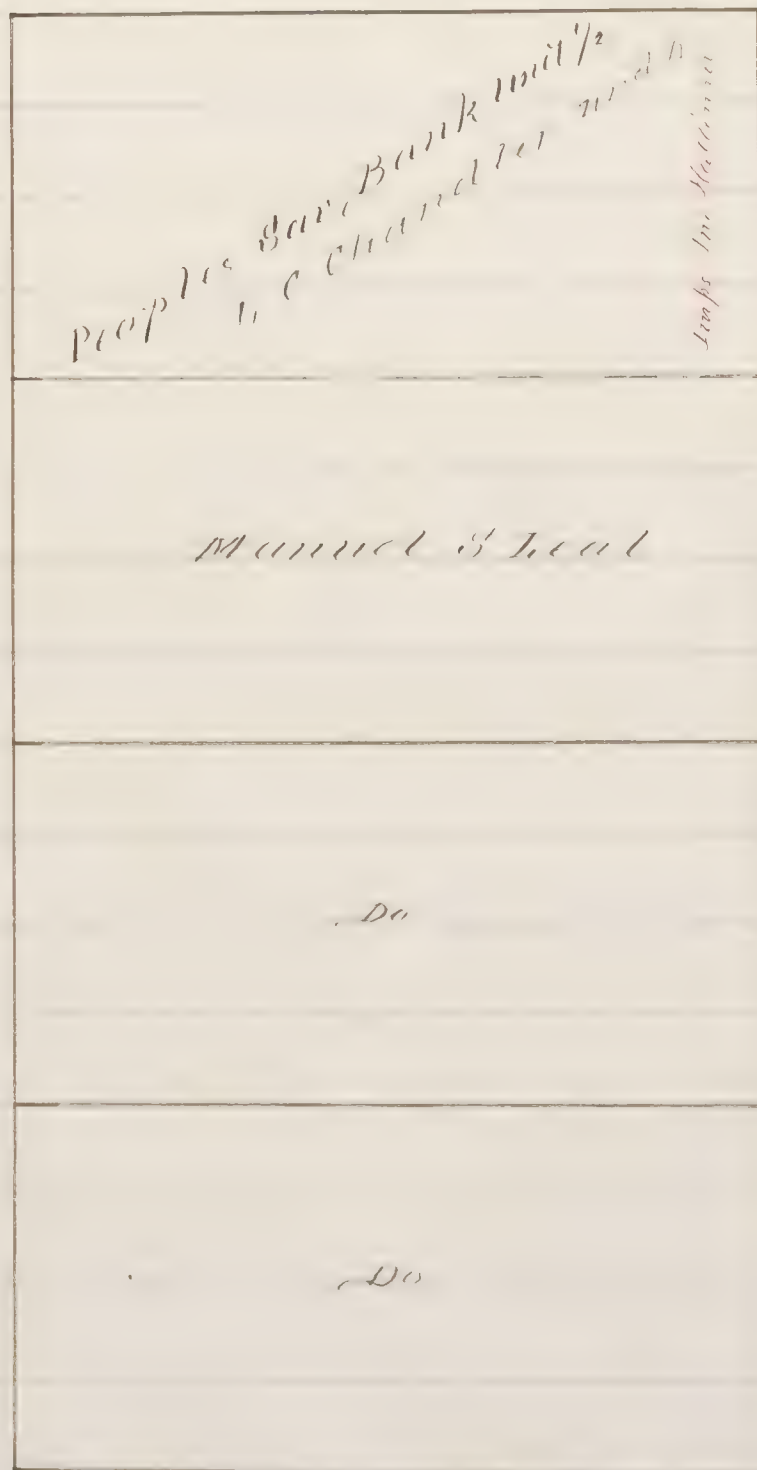 Peoples Sav. Bank und 1/2
L C Chandler und 1/2
Imps
Manuel S Leal
Do
Do